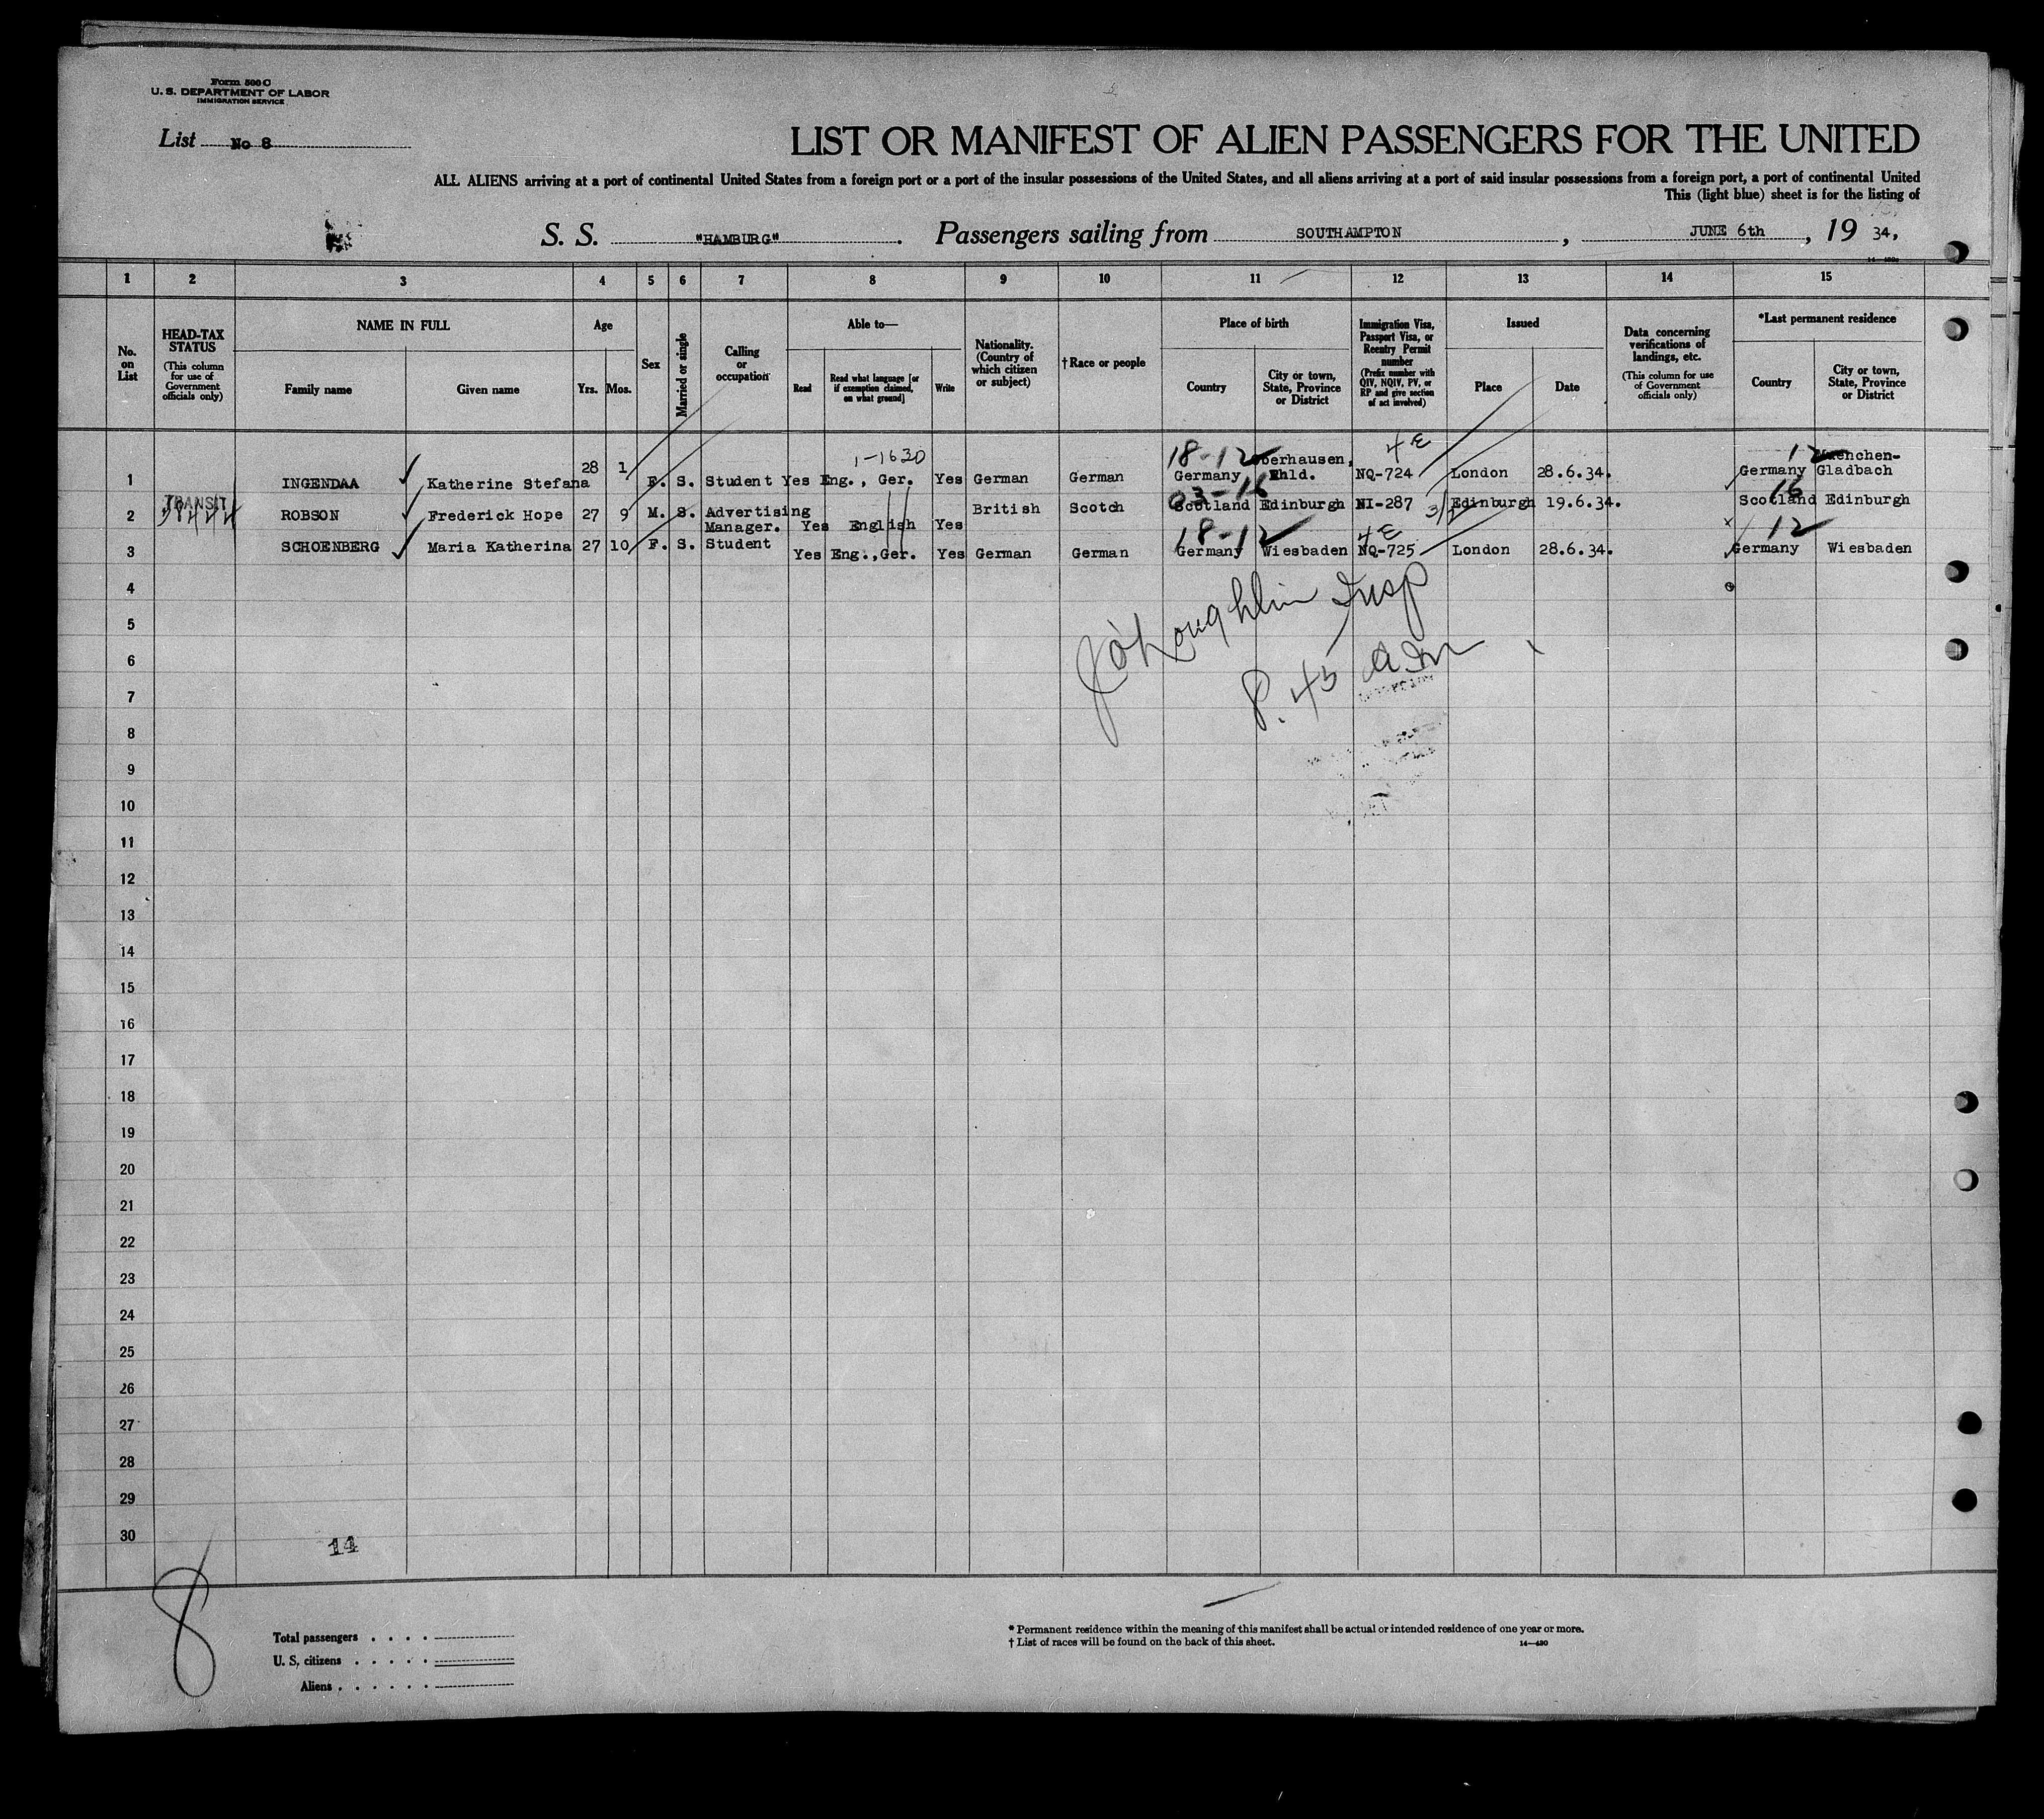 Form 500 C
U. S. DEPARTMENT OF LABOR
IMMIGRATION SERVICE
List No 8
LIST OR MANIFEST OF ALIEN PASSENGERS FOR THE UNITED
ALL ALIENS arriving at a port of continental United States from a foreign port or a port of the insular possessions of the United States, and all aliens arriving at a port of said insular possessions from a foreign port, a port of continental United
This (light blue) sheet is for the listing of
S. S. "HAMBURG". Passengers sailing from SOUTHAMPTON, JUNE 6th, 19 34,
1 2 3 4 5 6 7 8 9 10 11 12 13 14 15
No. on List
HEAD-TAX STATUS
(This column for use of Government officials only)
NAME IN FULL
Family name Given name
Age
Yrs. Mos.
Sex
Married or single
Calling or occupation
Able to—
Read
Read what language [or if exemption claimed, on what ground]
Write
Nationality. (Country of which citizen or subject)
†Race or people
Place of birth
Country
City or town, State, Province or District
Immigration Visa, Passport Visa, or Reentry Permit number
(Prefix number with QIV, NQIV, PV, or RP and give section of act involved)
Issued
Place Date
Data concerning verifications of landings, etc.
(This column for use of Government officials only)
*Last permanent residence
Country
City or town, State, Province or District
1-1630 18-12 4 E 12
1 INGENDAA Katherine Stefana 28 1 F. S. Student Yes Eng., Ger. Yes German German Germany Oberhausen, Rhld. NQ-724 London 28.6.34. Germany Muenchen-Gladbach
TRANSIT
03-16 3/2 16
2 ROBSON Frederick Hope 27 9 M. S. Advertising Manager. Yes English Yes British Scotch Scotland Edinburgh NI-287 Edinburgh 19.6.34. Scotland Edinburgh
18-12 4 E 12
3 SCHOENBERG Maria Katherina 27 10 F. S. Student Yes Eng., Ger. Yes German German Germany Wiesbaden NQ-725 London 28.6.34. Germany Wiesbaden
4
J O'Loughlin Insp
5
6
8.45 am
7
8
9
10
11
12
13
14
15
16
17
18
19
20
21
22
23
24
25
26
27
28
29
30
14
8
Total passengers
U. S. citizens
Aliens
* Permanent residence within the meaning of this manifest shall be actual or intended residence of one year or more.
† List of races will be found on the back of this sheet.
14—430